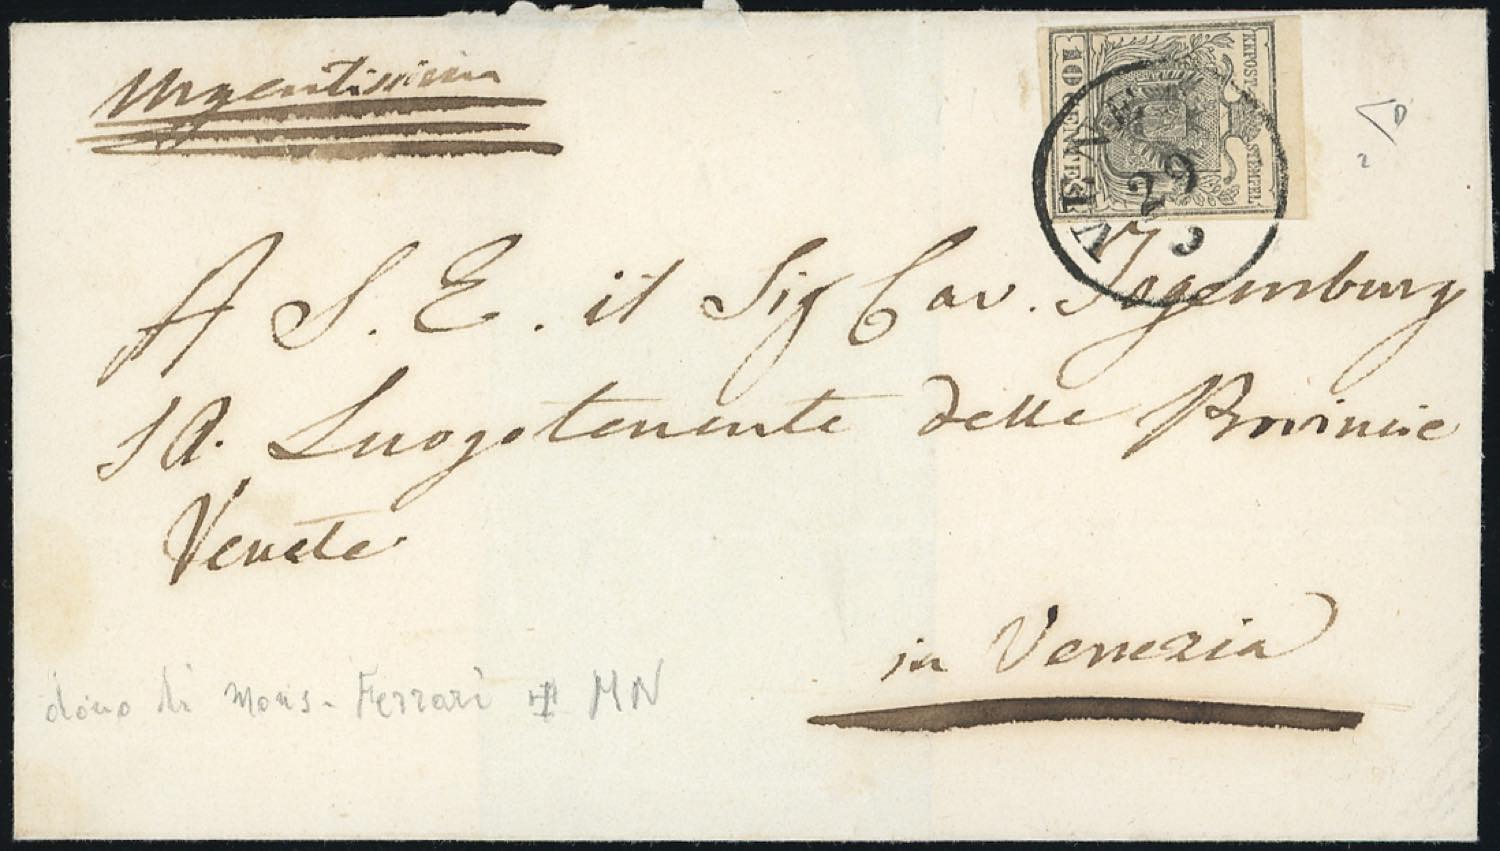 Urgentissima
KKPOST-STEMPEL
10 CENTES
VENEZIA
29
A S. E. il Sig Cav. Togenburg
Luogotenente delle Provincie
Venete
in Venezia
dono di Mons. Ferrari MN